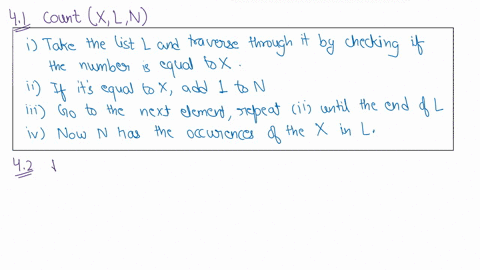 4.1 Count (X,L,N)
i) Take the list L and traverse through it by checking if
the number is equal to X.
ii) If it's equal to X, add 1 to N
iii) Go to the next element, repeat (ii) until the end of L
iv) Now N has the occurences of the X in L.
4.2